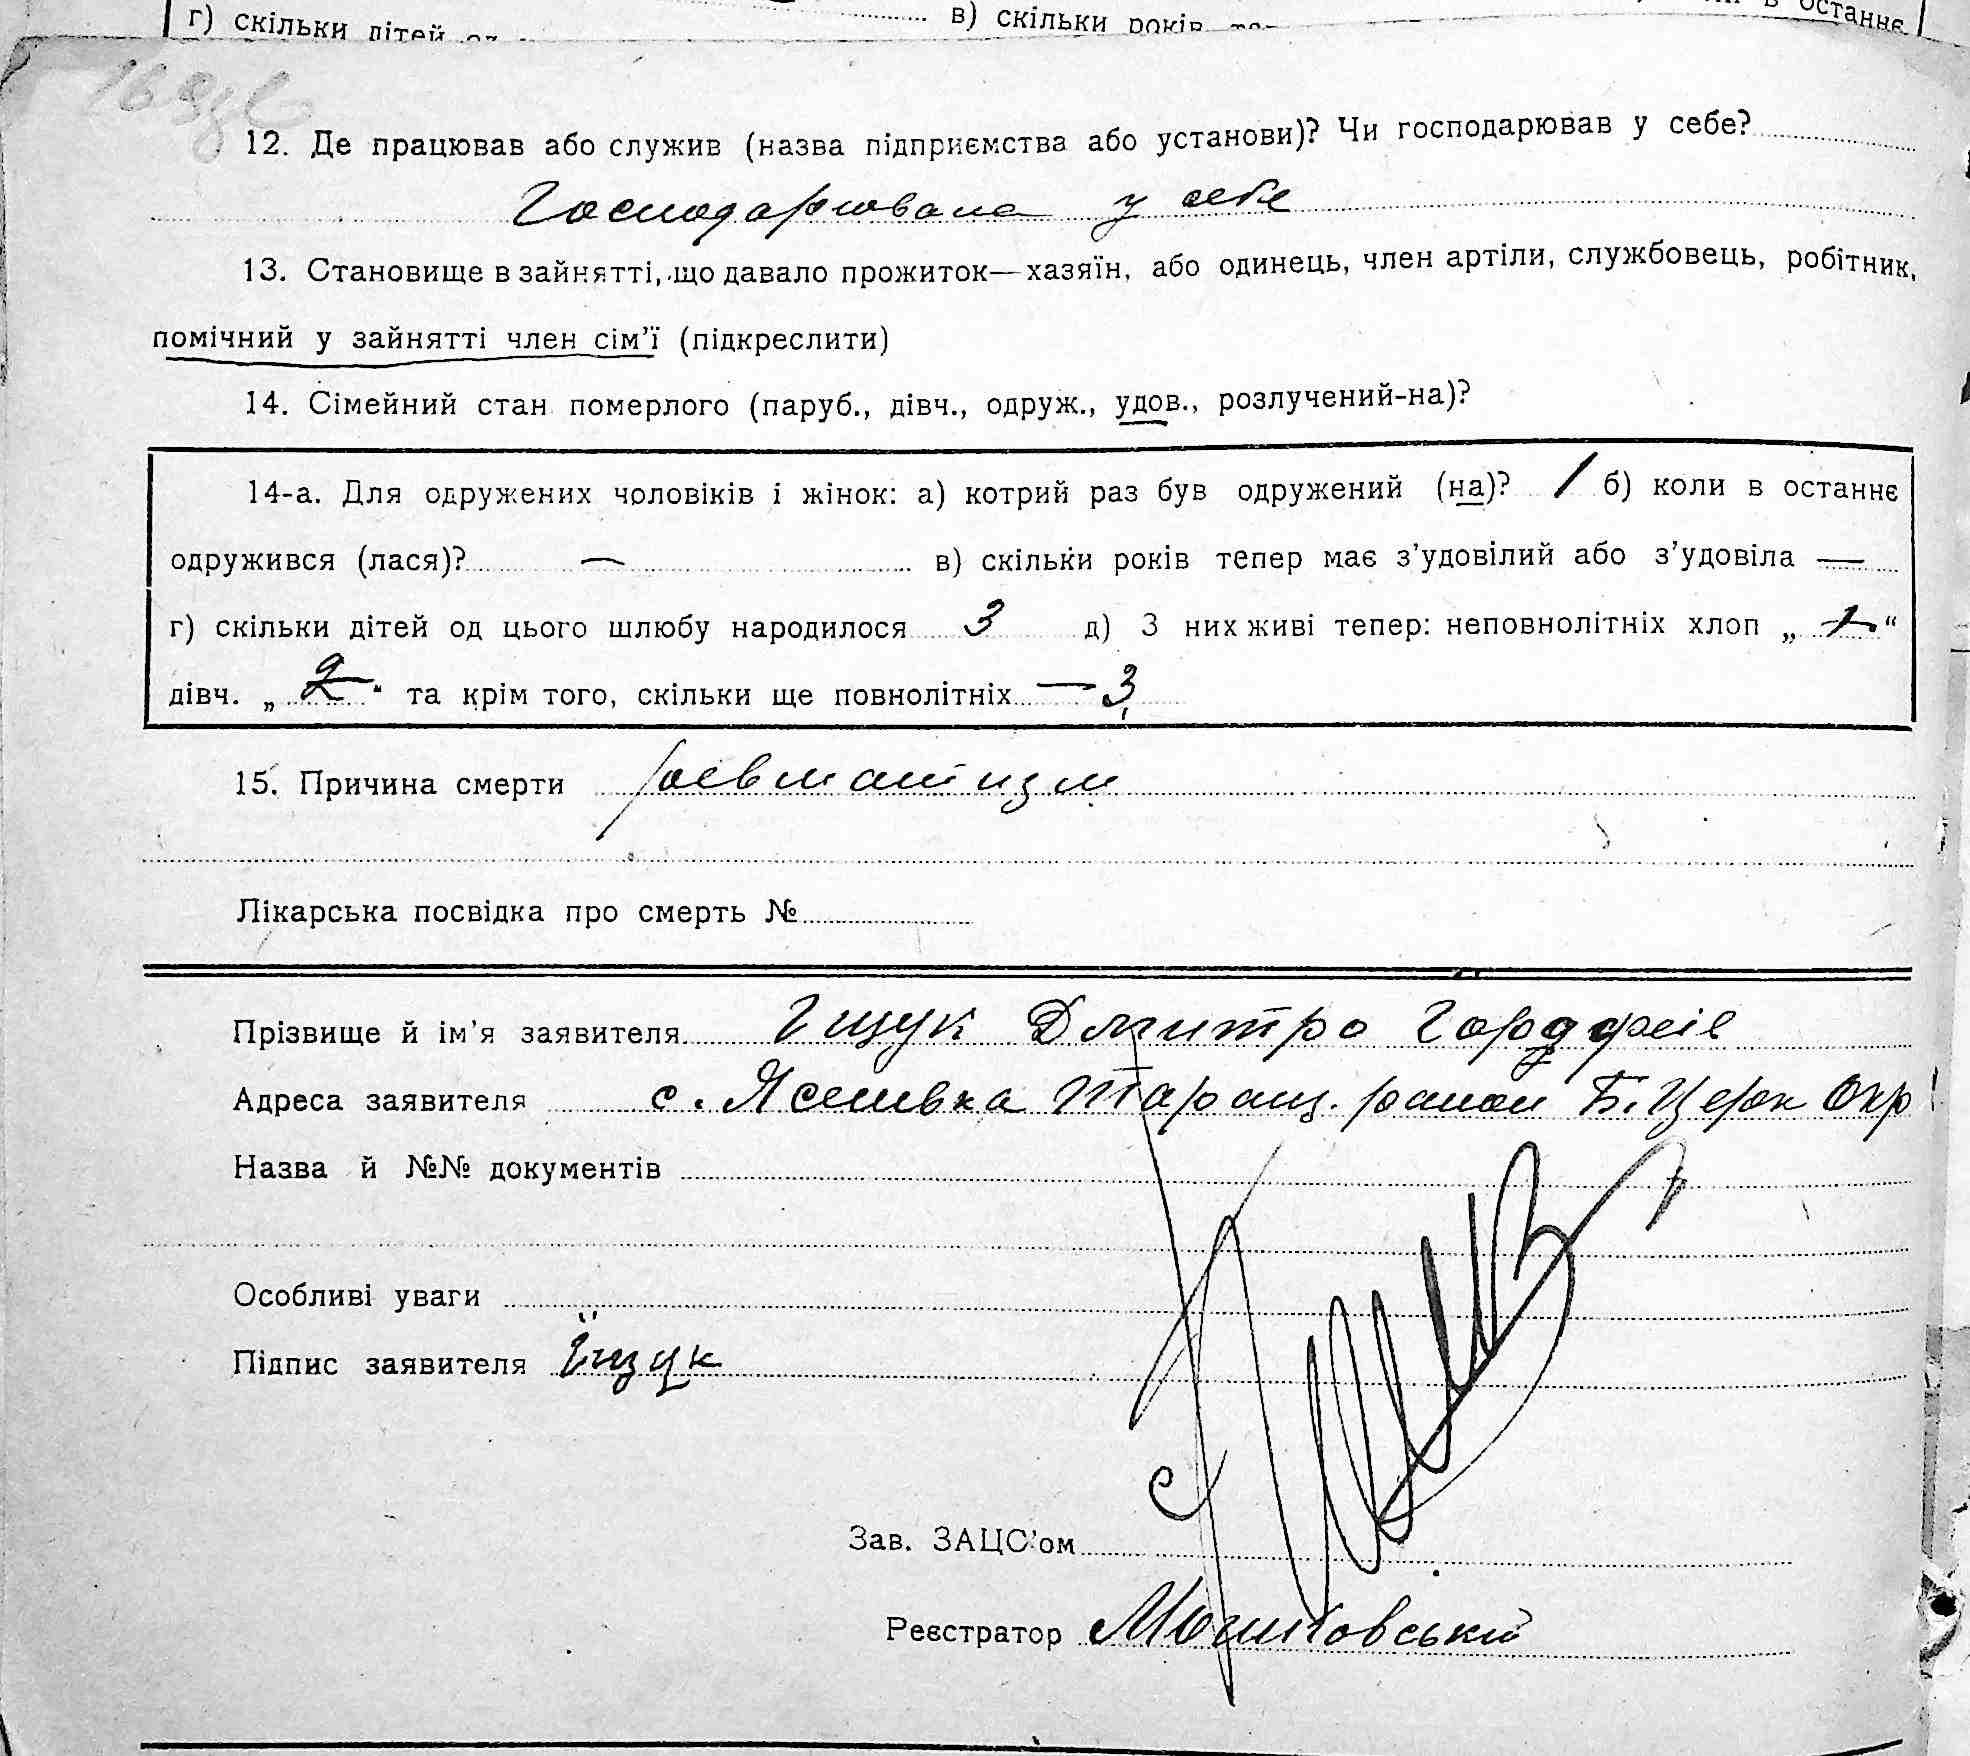 г) скільки дітей од
в) скільки років те-
в останнє
12. Де працював або служив (назва підприємства або установи)? Чи господарював у себе?
Господарювала у себе
13. Становище в зайнятті, що давало прожиток—хазяїн, або одинець, член артіли, службовець, робітник,
помічний у зайнятті член сім'ї (підкреслити)
14. Сімейний стан померлого (паруб., дівч., одруж., удов., розлучений-на)?
14-а. Для одружених чоловіків і жінок: а) котрий раз був одружений (на)? 1 б) коли в останнє
одружився (лася)? — в) скільки років тепер має з'удовілий або з'удовіла —
г) скільки дітей од цього шлюбу народилося 3 д) З них живі тепер: неповнолітніх хлоп „ 1 “
дівч. „ 2 “ та крім того, скільки ще повнолітніх — 3
15. Причина смерти ревматизм
Лікарська посвідка про смерть №
Прізвище й ім'я заявителя Іщук Дмитро
Адреса заявителя с. Ясенівка Таращ. район Б. Церк Окр
Назва й №№ документів
Особливі уваги
Підпис заявителя Їщук
Зав. ЗАЦС'ом
Реєстратор